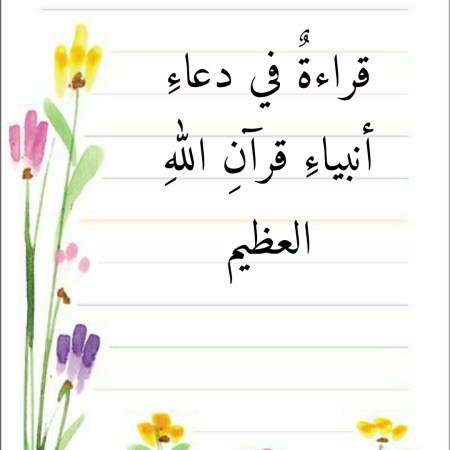 قراءةٌ في دعاءِ
أنبياءِ قرآنِ اللهِ
العظيم